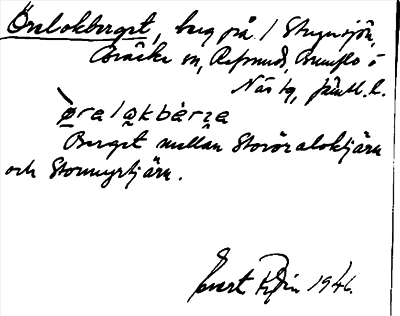 Öralokberget, berg på / Stugusjön,
Bräcke sn, Refsunds, Brunflo o
Näs tg, Jämtl. l.
ø̱ralo̱kbàrza
Berget mellan Storöraloktjärn
och Stormyrtjärn.
Evert 1946.